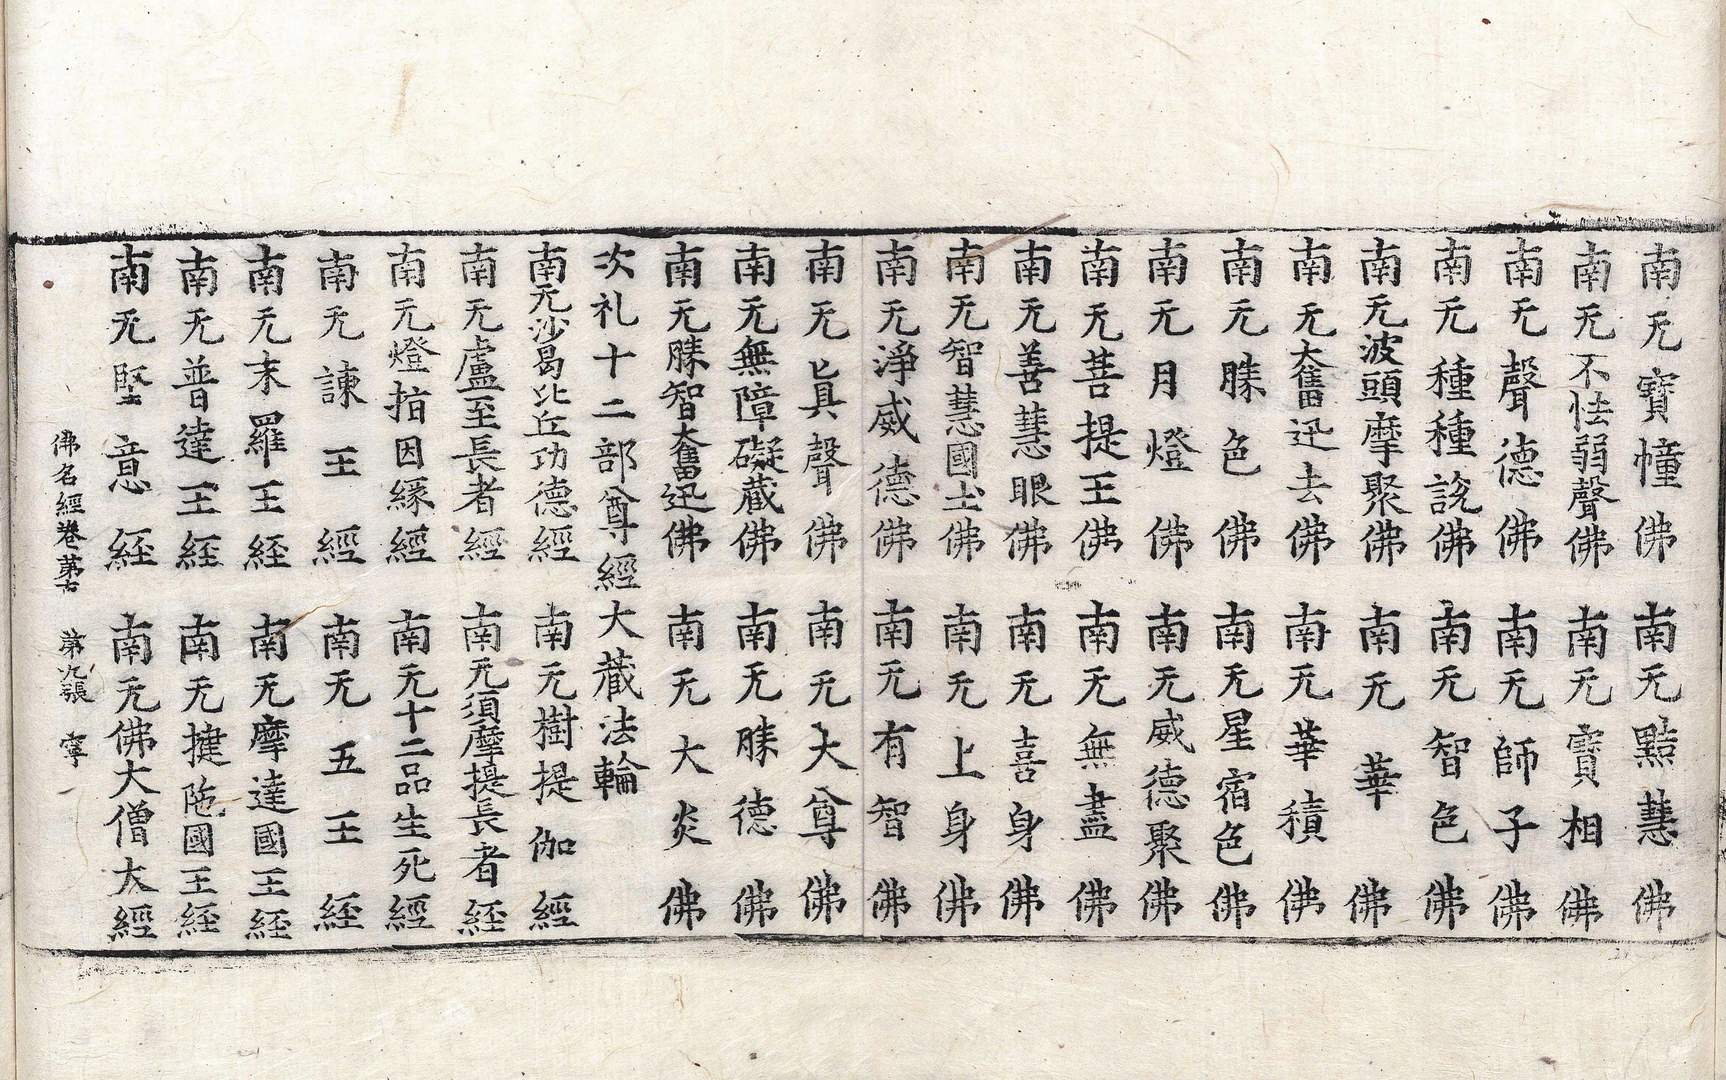 南无寶幢佛 南无㸃慧佛
南无不怯弱聲佛 南无寶相佛
南无聲德佛 南无師子佛
南无種種說佛 南无智色佛
南无波頭摩聚佛 南无華佛
南无大奮迅去佛 南无華積佛
南无勝色佛 南无星宿色佛
南无月燈佛 南无威德聚佛
南无菩提王佛 南无無盡佛
南无善慧眼佛 南无喜身佛
南无智慧國土佛 南无上身佛
南无淨威德佛 南无有智佛
南无具聲佛 南无大尊佛
南无無障礙藏佛 南无勝德佛
南无勝智奮迅佛 南无大炎佛
次礼十二部尊經大藏法輪
南无沙曷比丘功德經 南无樹提伽經
南无盧至長者經 南无須摩提長者經
南无燈指因緣經 南无十二品生死經
南无諫王經 南无五王經
南无末羅王經 南无摩達國王經
南无普達王經 南无揵陁國王經
南无堅意經 南无佛大僧大經
佛名經卷第 第九張 寧